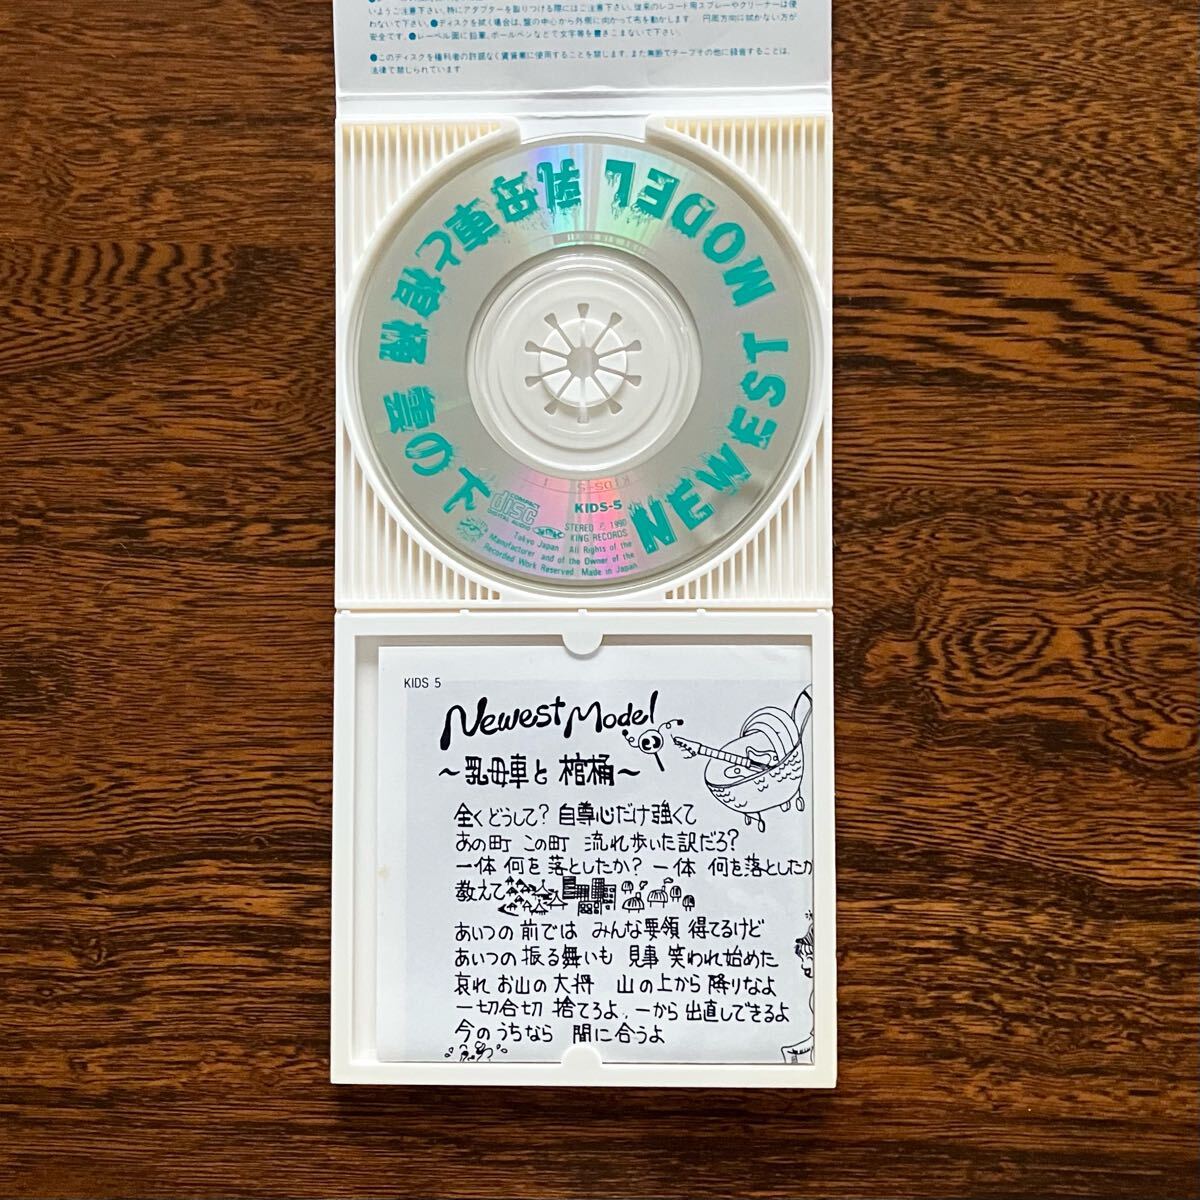 いようご注意下さい。特にアダプターを取りつける際にはご注意下さい。従来のレコード用スプレーやクリーナーは使
わないで下さい。●ディスクを拭く場合は、盤の中心から外側に向かって布を動かします 円周方向に拭かない方が
安全です。●レーベル面に鉛筆、ボールペンなどで文字等を書きこまないで下さい。
●このディスクを権利者の許諾なく賃貸業に使用することを禁じます。また無断でテープその他に録音することは、
法律で禁じられています
NEWEST MODEL 乳母車と棺桶 雲の下
KIDS-5
COMPACT
disc
DIGITAL AUDIO
STEREO Ⓟ 1990
KING RECORDS
Tokyo Japan All Rights of the
Manufacturer and of the Owner of the
Recorded Work Reserved Made in Japan
KIDS 5
Newest Model
～乳母車と 棺桶～
全くどうして? 自尊心だけ強くて
あの町 この町 流れ歩いた訳だろ?
一体 何を落としたか? 一体 何を落としたか
教えて
あいつの前では みんな要領 得てるけど
あいつの振る舞いも 見事 笑われ始めた
哀れ お山の大将 山の上から 降りなよ
一切合切 捨てろよ、一から出直しできるよ
今のうちなら 間に合うよ